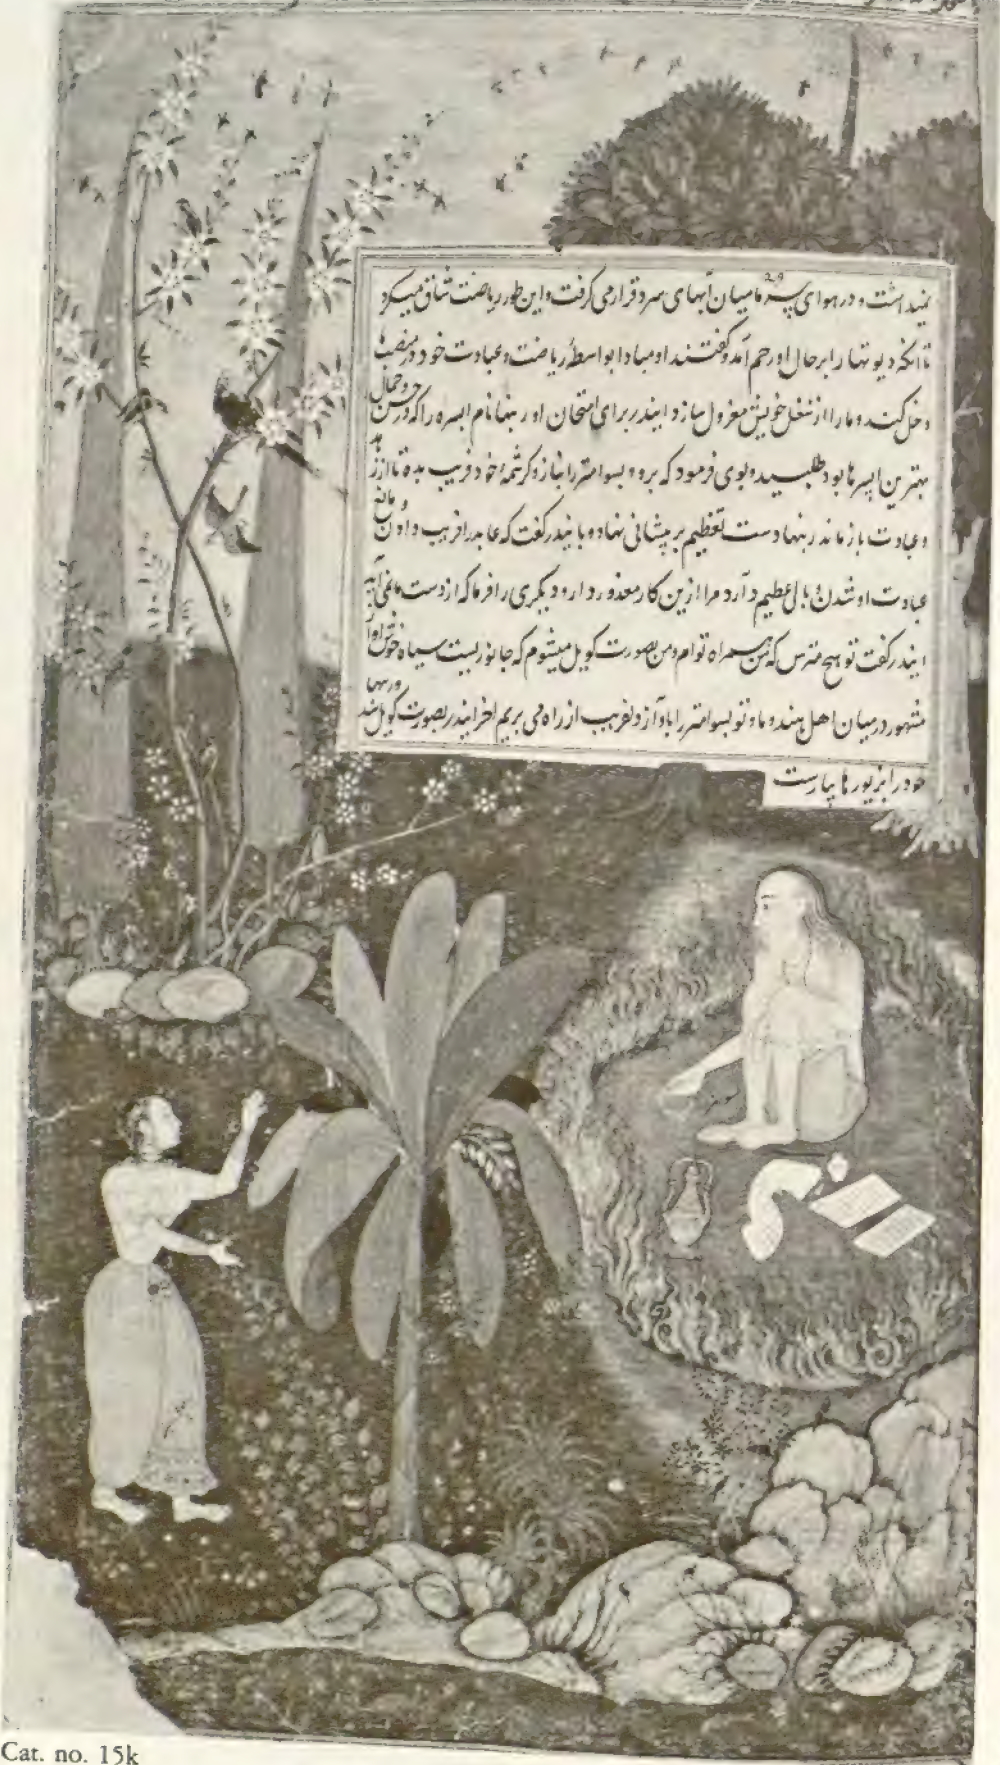 و در هوای سرما میان آبهای سرد قرار می گرفت و این طور ریاضت شاق میکرد
تا آنکه دیوتها را بر حال او رحم آمد و گفتند او مبادا بواسطهٔ ریاضت و عبادت خود در منصبها
دخل کند و ما را از شغل خویش معزول سازد ایندر برای امتحان او رنبها نام اپسره را که در حسن و جمال
بهترین اپسرها بود طلبیده بوی فرمود که برو و بسوامتر را بناز و کرشمهٔ خود فریب بده تا از زهد
و عبادت باز ماند رنبها دست تعظیم بر پیشانی نهاد و بایندر گفت که عابد را فریب دادن و مانع
عبادت او شدن وبالی عظیم دارد مرا ازین کار معذور دارد و دیگری را فرما که از دست ما نمی آید
ایندر گفت تو هیچ مترس که من همراه توام و من بصورت کویل میشوم که جانوریست سیاه خوش آواز
مشهور در میان اهل هند و ما و تو بسوامتر را باواز دلفریب از راه می بریم آخر ایندر بصورت کویل شد و رنبها
خود را بزیورها بیاراست
Cat. no. 15k